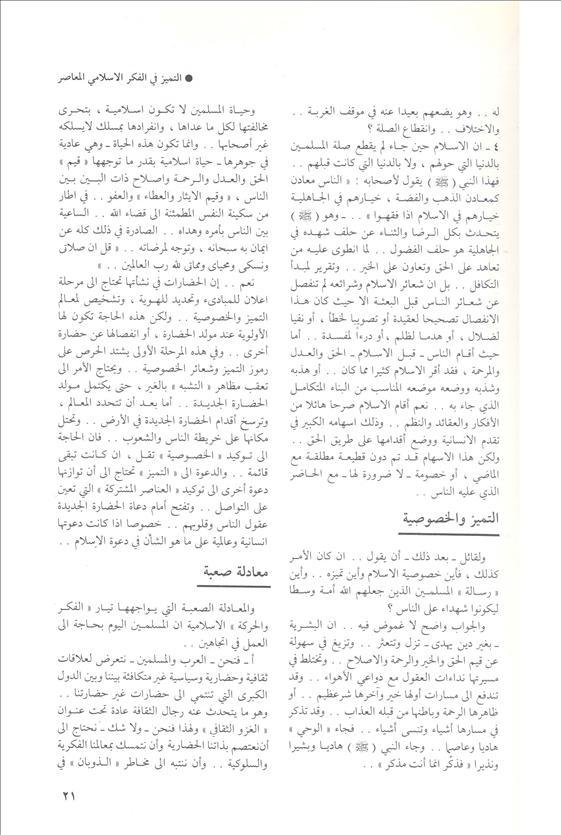 ● التميز في الفكر الاسلامي المعاصر
له . . وهو يضعهم بعيدا عنه في موقف الغربة . .
والاختلاف . . وانقطاع الصلة ؟
٤ ـ ان الاسلام حين جاء لم يقطع صلة المسلمين
بالدنيا التي حولهم ، ولا بالدنيا التي كانت قبلهم . .
فهذا النبي ( ﷺ ) يقول لأصحابه : « الناس معادن
كمعادن الذهب والفضة ، خيارهم في الجاهلية
خيارهم في الاسلام اذا فقهوا » . . ـ وهو ( ﷺ )
يتحدث بكل الرضا والثناء عن حلف شهده في
الجاهلية هو حلف الفضول . . لما انطوى عليه من
تعاهد على الحق وتعاون على الخير . . وتقرير لمبدأ
التكافل . . بل ان شعائر الاسلام وشرائعه لم تنفصل
عن شعائر الناس قبل البعثة الا حيث كان هذا
الانفصال تصحيحا لعقيدة أو تصويبا لخطأ ، أو نفيا
لضلال ، أو هدما لظلم ، أو درءاً لمفسدة . . أما
حيث أقام الناس ـ قبل الاسلام ـ الحق والعدل
والمرحمة ، فقد أقر الاسلام كثيرا مما كان . . أو هذبه
وشذبه ووضعه موضعه المناسب من البناء المتكامل
الذي جاء به . . نعم أقام الاسلام صرحا هائلا من
الأفكار والعقائد والنظم . . وذلك اسهامه الكبير في
تقدم الانسانية ووضع أقدامها على طريق الحق . .
ولكن هذا الاسهام قد تم دون قطيعة مطلقة مع
الماضي ، أو خصومة ـ لا ضرورة لها ـ مع الحاضر
الذي عليه الناس . .
التميز والخصوصية
ولقائل ـ بعد ذلك ـ أن يقول . . ان كان الأمر
كذلك ، فأين خصوصية الاسلام وأين تميزه . . وأين
« رسالة » المسلمين الذين جعلهم الله أمة وسطا
ليكونوا شهداء على الناس ؟
والجواب واضح لا غموض فيه . . ان البشرية
ـ بغير دين يهدى ـ تزل وتتعثر . . وتزيغ في سهولة
عن قيم الحق والخير والرحمة والاصلاح . . وتختلط في
مسيرتها نداءات العقول مع دواعي الأهواء . . وقد
تندفع الى مسارات أولها خير وآخرها شر عظيم . . أو
ظاهرها الرحمة وباطنها من قبله العذاب . . وقد تذكر
في مسارها أشياء وتنسى أشياء . . فجاء « الوحي »
هاديا وعاصما . . وجاء النبي ( ﷺ ) هاديا وبشيرا
ونذيرا « فذكّر انما أنت مذكر » . .
وحياة المسلمين لا تكون اسلامية ، بتحرى
مخالفتها لكل ما عداها ، وانفرادها بمسلك لا يسلكه
غير أصحابها . . وانما تكون هذه الحياة ـ وهي عادية
في جوهرها ـ حياة اسلامية بقدر ما توجهها « قيم »
الحق والعدل والرحمة واصلاح ذات البين بين
الناس ، « وقيم الايثار والعطاء » والعفو . . في اطار
من سكينة النفس المطمئنة الى قضاء الله . . الساعية
بين الناس بأمره وهداه . . الصادرة في ذلك كله عن
ايمان به سبحانه ، وتوجه لمرضاته . . « قل ان صلاتى
ونسكى ومحياى ومماتى لله رب العالمين . . »
نعم . . إن الحضارات في نشأتها تحتاج الى مرحلة
اعلان للمبادىء وتحديد للهوية ، وتشخيص لمعالم
التميز والخصوصية . . ولكن هذه الحاجة تكون لها
الأولوية عند مولد الحضارة ، أو انفصالها عن حضارة
أخرى . . وفي هذه المرحلة الأولى يشتد الحرص على
رموز التميز وشعائر الخصوصية . . ويحتاج الأمر الى
تعقب مظاهر « التشبه » بالغير ، حتى يكتمل مولد
الحضارة الجديدة . . أما بعد أن تتحدد المعالم ،
وترسخ أقدام الحضارة الجديدة في الأرض . . وتحتل
مكانها على خريطة الناس والشعوب . . فان الحاجة
الى توكيد « الخصوصية » تقل ، ان كانت تبقى
قائمة . . والدعوة الى « التميز » تحتاج الى أن توازنها
دعوة أخرى الى توكيد « العناصر المشتركة » التي تعين
على التواصل . . وتفتح أمام دعاة الحضارة الجديدة
عقول الناس وقلوبهم . . خصوصا اذا كانت دعوتها
انسانية وعالمية على ما هو الشأن في دعوة الإسلام . .
معادلة صعبة
والمعادلة الصعبة التي يواجهها تيار « الفكر
والحركة » الاسلامية ان المسلمين اليوم بحاجة الى
العمل في اتجاهين . .
أ ـ فنحن ـ العرب والمسلمين ـ نتعرض لعلاقات
ثقافية وحضارية وسياسية غير متكافئة بيننا وبين الدول
الكبرى التي تنتمي الى حضارات غير حضارتنا . .
وهو ما يتحدث عنه رجال الثقافة عادة تحت عنوان
« الغزو الثقافي » ولهذا فنحن ـ ولا شك ـ نحتاج الى
أن نعتصم بذاتنا الحضارية وأن نتمسك بمعالمنا الفكرية
والسلوكية . . وأن ننتبه الى مخاطر « الذوبان » في
٢١